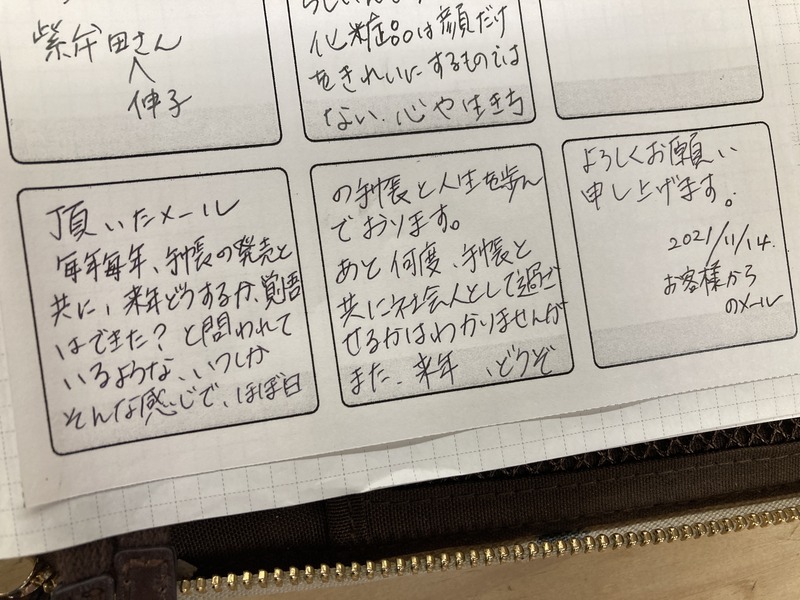 紫牟田さん
へ
伸子
化粧品は顔だけ
をきれいにするものでは
ない.心や生き方
頂いたメール
毎年毎年、手帳の発売と
共に、来年どうするか、覚悟
はできた?と問われて
いるような、いつしか
そんな感じで、ほぼ日
の手帳と人生を歩ん
でおります。
あと何度、手帳と
共に社会人として過ご
せるかはわかりませんが
また、来年、どうぞ
よろしくお願い
申し上げます。
2021/11/14.
お客様から
のメール